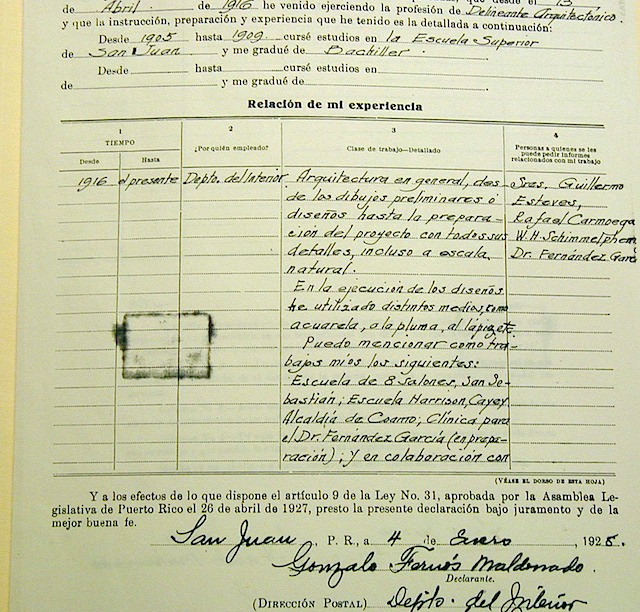 de Abril de 1916 he venido ejerciendo la profesión de Delineante Arquitectónico.
y que la instrucción, preparación y experiencia que he tenido es la detallada a continuación:
Desde 1905 hasta 1909 cursé estudios en la Escuela Superior
de San Juan y me gradué de Bachiller.
Desde hasta cursé estudios en
de y me gradué de
Relación de mi experiencia
1 2 3 4
TIEMPO
Desde Hasta
¿Por quién empleado?
Clase de trabajo—Detallado
Personas a quienes se les
puede pedir informes
relacionados con mi trabajo
1916 el presente Depto. del Interior Arquitectura en general, des- Sres. Guillermo
de los dibujos preliminares ó Esteves,
diseños hasta la prepara- Rafael Carmoega
ción del proyecto con todos sus W.H. Schimmelphen
detalles, incluso a escala Dr. Fernández García
natural.
En la ejecución de los diseños
he utilizado distintos medios, como
acuarela, a la pluma, al lápiz, etc.
Puedo mencionar como tra-
bajos míos los siguientes:
Escuela de 8 salones, San Se-
bastián; Escuela Harrison, Cayey
Alcaldía de Coamo; Clínica para
el Dr. Fernández García (en prepa-
ración); y en colaboración con
(VÉASE EL DORSO DE ESTA HOJA)
Y a los efectos de lo que dispone el artículo 9 de la Ley No. 31, aprobada por la Asamblea Le-
gislativa de Puerto Rico el 26 de abril de 1927, presto la presente declaración bajo juramento y de
la mejor buena fe.
San Juan, P. R., a 4 de Enero, 1928.
Gonzalo Fernós Maldonado.
Declarante.
(DIRECCIÓN POSTAL) Depto. del Interior